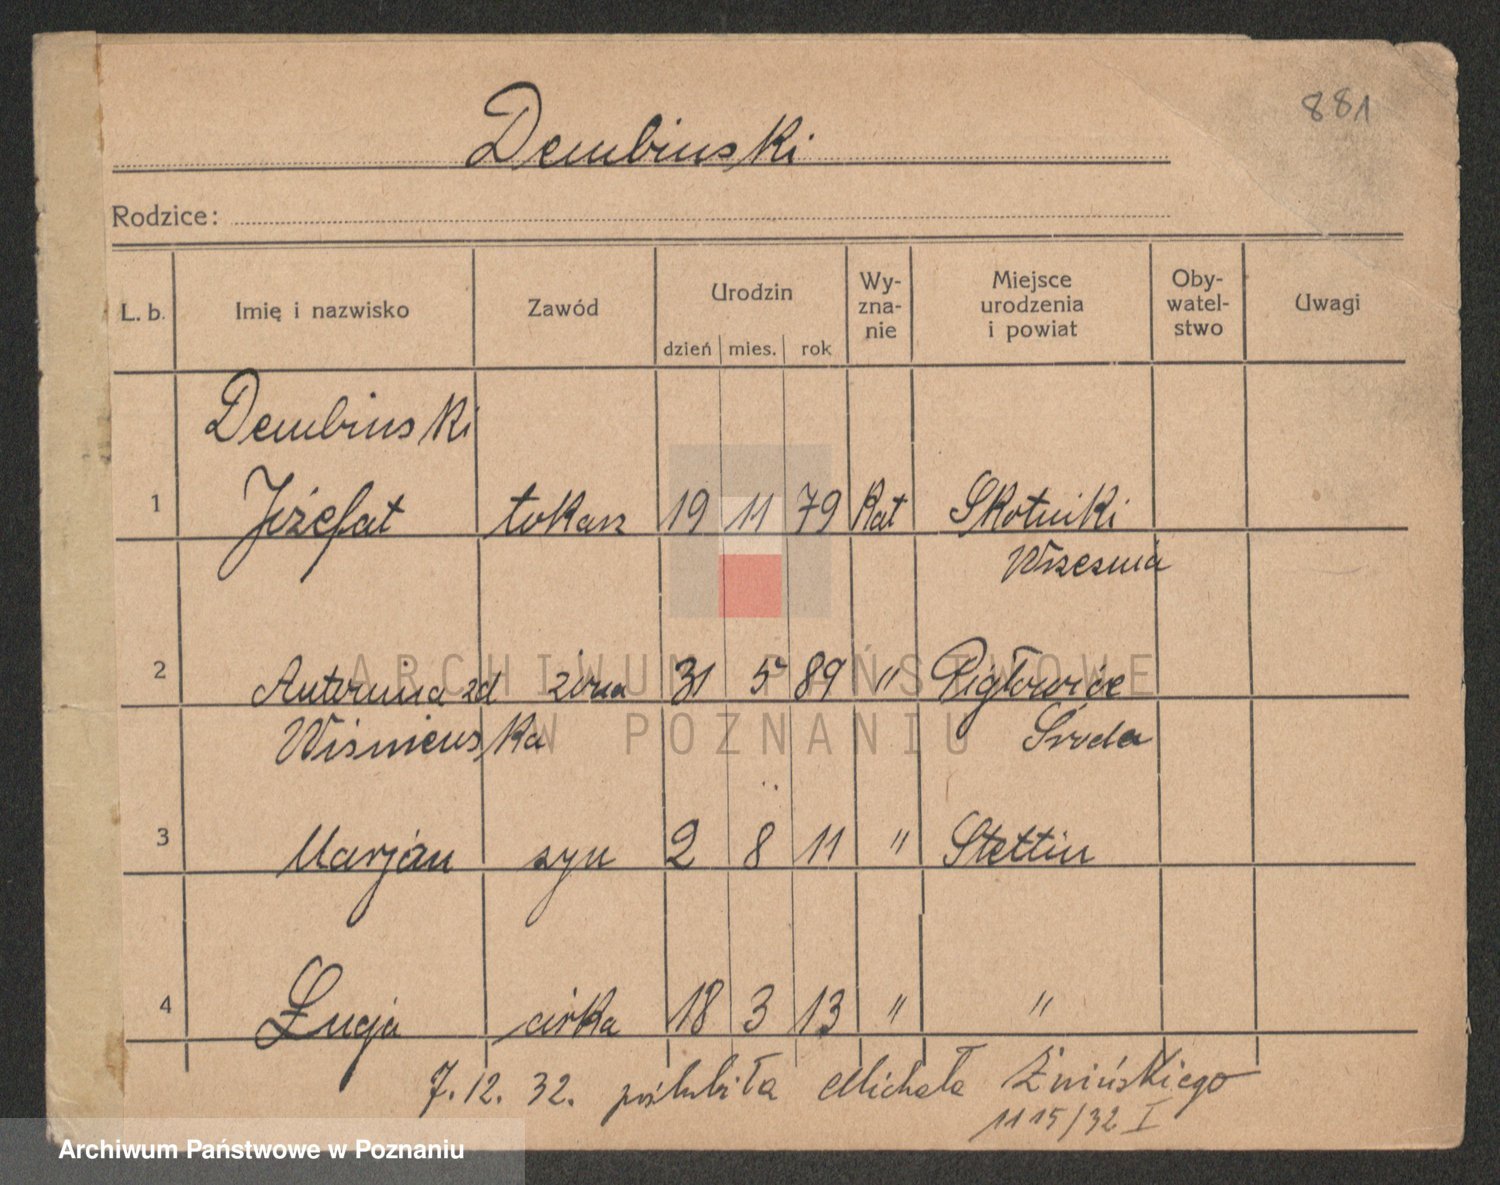 881
Dembinski
Rodzice:
L. b. Imię i nazwisko Zawód Urodzin dzień mies. rok Wy-zna-nie Miejsce urodzenia i powiat Oby-watel-stwo Uwagi
Dembinski
1 Józefat tokarz 19 11 79 Kat Skotniki
Wrzesnia
2 Antonina zd żona 31 5 89 " Pigłowice
Wiśniewska Środa
3 Marjan syn 2 8 11 " Stettin
4 Łucja córka 18 3 13 " "
7.12.32. poślubiła Michała Żnińskiego
1115/32 I
ARCHIWUM PAŃSTWOWE
W POZNANIU
Archiwum Państwowe w Poznaniu